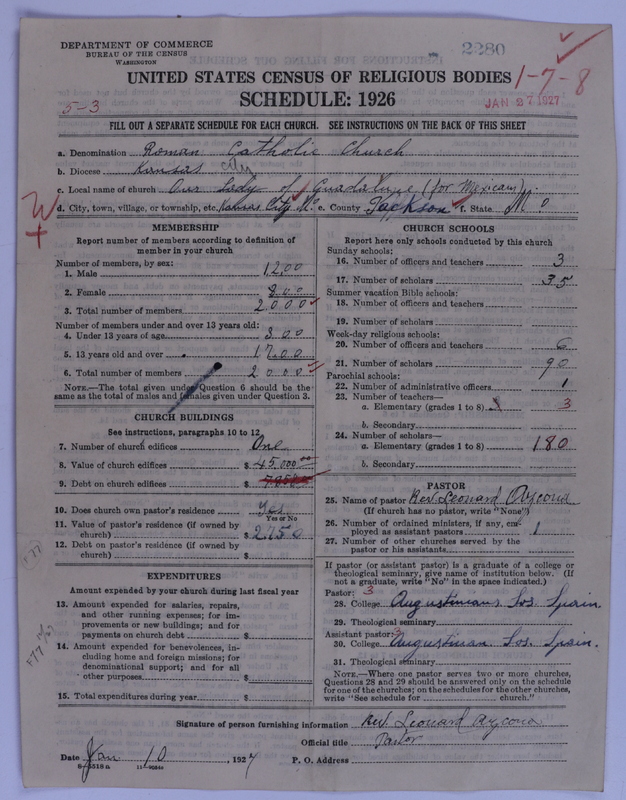 DEPARTMENT OF COMMERCE
BUREAU OF THE CENSUS
WASHINGTON
2280
UNITED STATES CENSUS OF RELIGIOUS BODIES
1-7-8
SCHEDULE: 1926
5-3
JAN 27 1927
FILL OUT A SEPARATE SCHEDULE FOR EACH CHURCH. SEE INSTRUCTIONS ON THE BACK OF THIS SHEET
a. Denomination Roman Catholic Church
b. Diocese Kansas City
c. Local name of church Our Lady of Guadalupe (for Mexicans)
d. City, town, village, or township, etc. Kansas City Mo e. County Jackson f. State Mo
MEMBERSHIP
Report number of members according to definition of
member in your church
Number of members, by sex:
1. Male 1,200
2. Female 800
3. Total number of members 2000
Number of members under and over 13 years old:
4. Under 13 years of age 300
5. 13 years old and over 1700
6. Total number of members 2000
NOTE.—The total given under Question 6 should be the
same as the total of males and females given under Question 3.
CHURCH BUILDINGS
See instructions, paragraphs 10 to 12
7. Number of church edifices One
8. Value of church edifices $ 45,000.00
9. Debt on church edifices $
10. Does church own pastor's residence Yes
Yes or No
11. Value of pastor's residence (if owned by
church) $ 2750
12. Debt on pastor's residence (if owned by
church) $
EXPENDITURES
Amount expended by your church during last fiscal year
13. Amount expended for salaries, repairs,
and other running expenses; for im-
provements or new buildings; and for
payments on church debt $
14. Amount expended for benevolences, in-
cluding home and foreign missions; for
denominational support; and for all
other purposes $
15. Total expenditures during year $
CHURCH SCHOOLS
Report here only schools conducted by this church
Sunday schools:
16. Number of officers and teachers 3
17. Number of scholars 35
Summer vacation Bible schools:
18. Number of officers and teachers
19. Number of scholars
Week-day religious schools:
20. Number of officers and teachers 6
21. Number of scholars 90
Parochial schools:
22. Number of administrative officers 1
23. Number of teachers—
a. Elementary (grades 1 to 8) 3
b. Secondary
24. Number of scholars—
a. Elementary (grades 1 to 8) 180
b. Secondary
PASTOR
25. Name of pastor Rev. Leonard Aycona
(If church has no pastor, write "None")
26. Number of ordained ministers, if any, em-
ployed as assistant pastors 1
27. Number of other churches served by the
pastor or his assistants
If pastor (or assistant pastor) is a graduate of a college or
theological seminary, give name of institution below. (If
not a graduate, write "No" in the space indicated.)
Pastor: 3
28. College Augustinians Sos. Spain.
29. Theological seminary
Assistant pastor:
30. College Augustinian Sos. Spain.
31. Theological seminary
NOTE.—Where one pastor serves two or more churches,
Questions 28 and 29 should be answered only on the schedule
for one of the churches; on the schedules for the other churches,
write "See schedule for church."
Signature of person furnishing information Rev. Leonard Aycona
Official title Pastor
Date Jan 10, 1927 P. O. Address